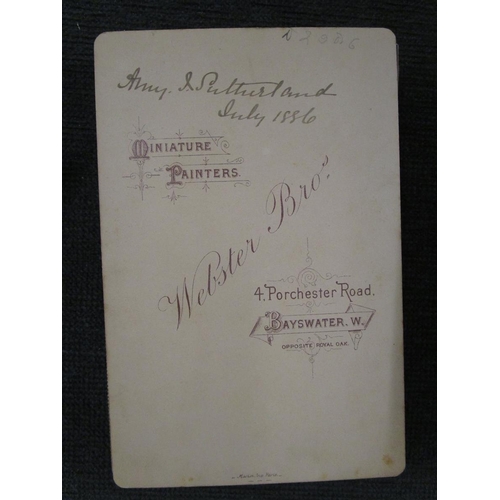 Amy. I. Sutherland
July 1886
MINIATURE
PAINTERS.
Webster Bros.
4. Porchester Road.
BAYSWATER. W.
OPPOSITE ROYAL OAK.